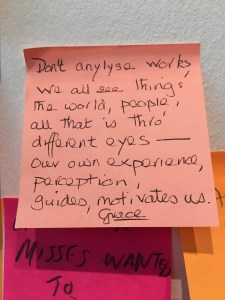 Don't anylyse works
We all see things,
the world, people,
all that is thro'
different eyes —
Our own experience,
perception,
guides, motivates us.
Grace
MISSES WANTS
TO